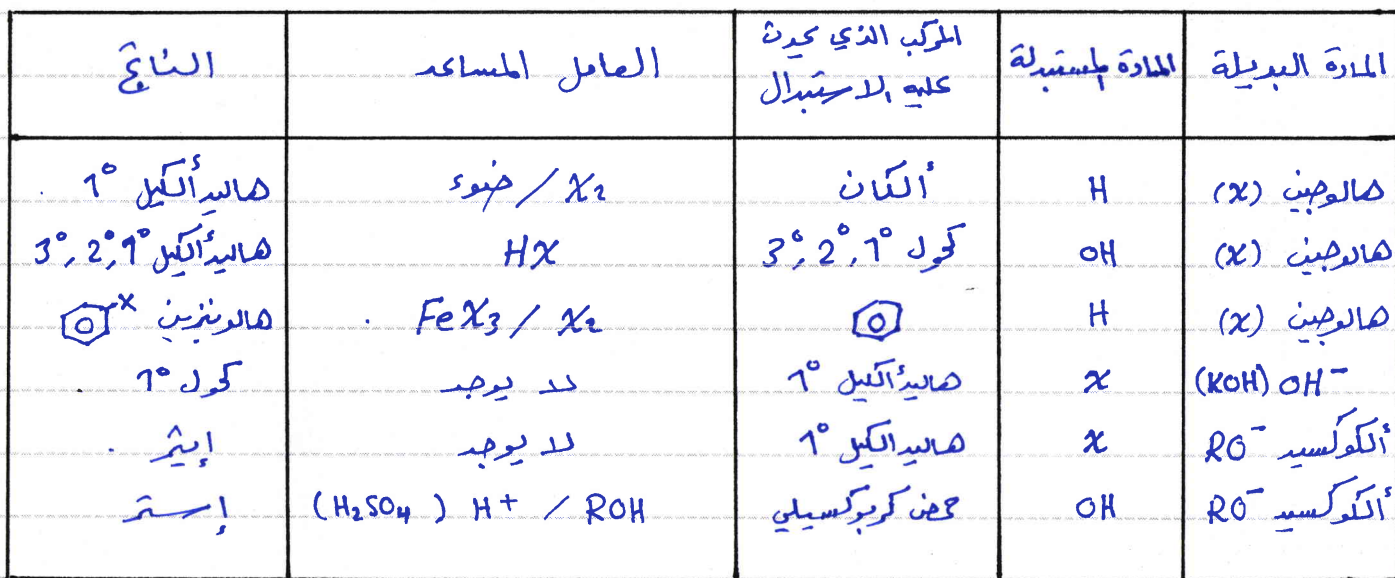 المادة البديلة | المادة المستبدلة | المركب الذي يحدث عليه الاستبدال | العامل المساعد | الناتج
هالوجين (X) | H | ألكان | X₂ / ضوء | هاليد ألكيل 1° .
هالوجين (X) | OH | كحول 1°, 2°, 3° | HX | هاليد ألكيل 1°, 2°, 3°
هالوجين (X) | H | FeX₃ / X₂ . | هالوبنزين X
(KOH) OH⁻ | X | هاليد ألكيل 1° | لا يوجد | كحول 1° .
ألكوكسيد RO⁻ | X | هاليد الكيل 1° | لا يوجد | إيثر .
ألكوكسيد RO⁻ | OH | حمض كربوكسيلي | (H₂SO₄) H⁺ / ROH | إستر